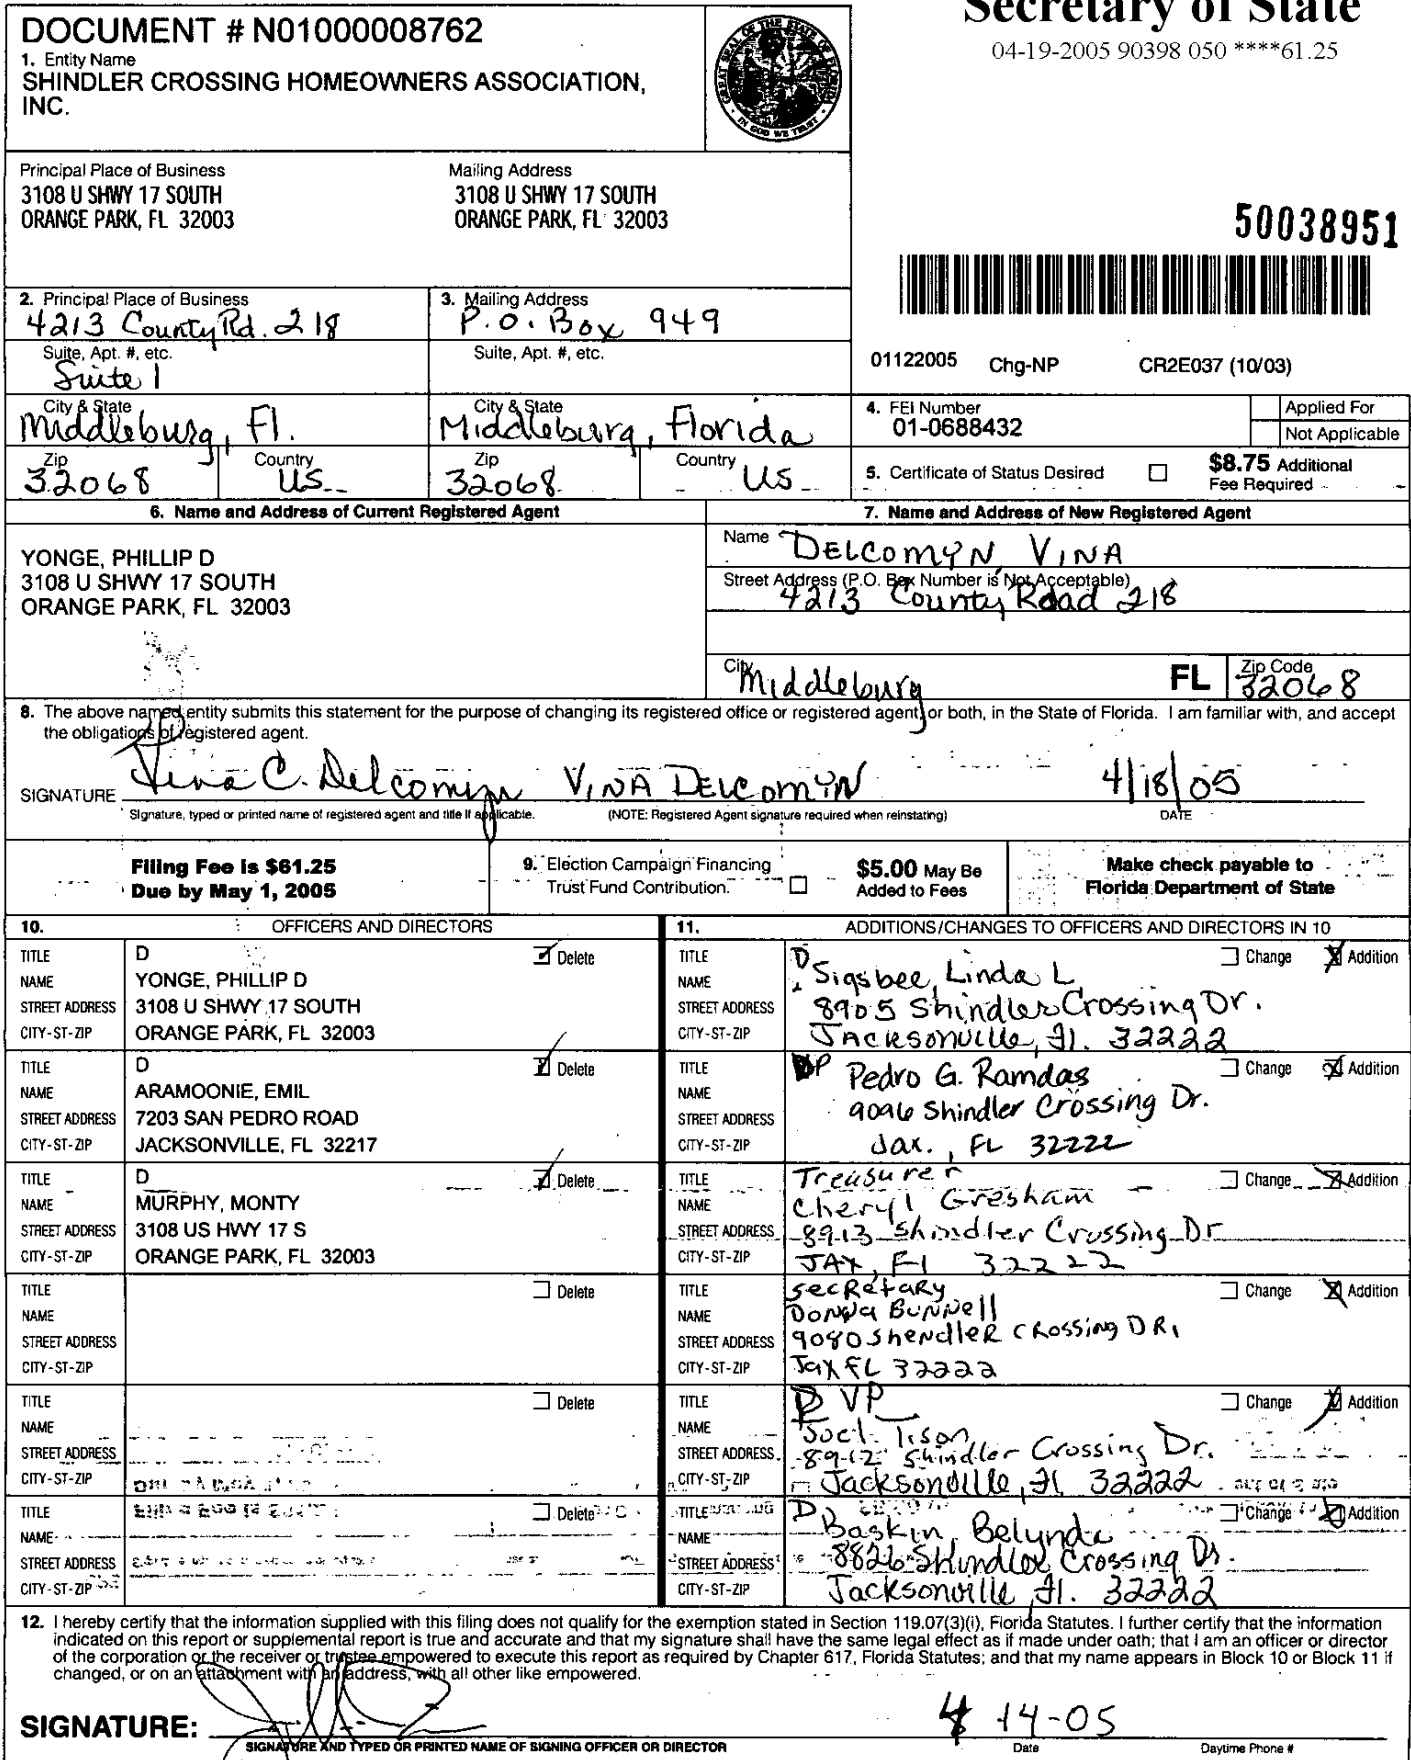 Secretary of State
04-19-2005 90398 050 ****61.25
DOCUMENT # N01000008762
1. Entity Name
SHINDLER CROSSING HOMEOWNERS ASSOCIATION,
INC.
GREAT SEAL OF THE STATE OF FLORIDA
IN GOD WE TRUST
Principal Place of Business
3108 U SHWY 17 SOUTH
ORANGE PARK, FL 32003
Mailing Address
3108 U SHWY 17 SOUTH
ORANGE PARK, FL 32003
50038951
2. Principal Place of Business
4213 County Rd. 218
Suite, Apt. #, etc.
Suite 1
City & State
Middleburg, Fl.
Zip
32068
Country
US
3. Mailing Address
P.O. Box 949
Suite, Apt. #, etc.
City & State
Middleburg, Florida
Zip
32068
Country
US
01122005 Chg-NP CR2E037 (10/03)
4. FEI Number
01-0688432
Applied For
Not Applicable
5. Certificate of Status Desired
$8.75 Additional
Fee Required
6. Name and Address of Current Registered Agent
YONGE, PHILLIP D
3108 U SHWY 17 SOUTH
ORANGE PARK, FL 32003
7. Name and Address of New Registered Agent
Name DELCOMYN, VINA
Street Address (P.O. Box Number is Not Acceptable)
4213 County Road 218
City Middleburg FL Zip Code 32068
8. The above named entity submits this statement for the purpose of changing its registered office or registered agent, or both, in the State of Florida. I am familiar with, and accept
the obligations of registered agent.
SIGNATURE Vina C. Delcomyn VINA DELCOMYN 4/18/05
Signature, typed or printed name of registered agent and title if applicable. (NOTE: Registered Agent signature required when reinstating) DATE
Filing Fee is $61.25
Due by May 1, 2005
9. Election Campaign Financing
Trust Fund Contribution.
$5.00 May Be
Added to Fees
Make check payable to
Florida Department of State
10. OFFICERS AND DIRECTORS
TITLE D Delete
NAME YONGE, PHILLIP D
STREET ADDRESS 3108 U SHWY 17 SOUTH
CITY-ST-ZIP ORANGE PARK, FL 32003
TITLE D Delete
NAME ARAMOONIE, EMIL
STREET ADDRESS 7203 SAN PEDRO ROAD
CITY-ST-ZIP JACKSONVILLE, FL 32217
TITLE D Delete
NAME MURPHY, MONTY
STREET ADDRESS 3108 US HWY 17 S
CITY-ST-ZIP ORANGE PARK, FL 32003
TITLE Delete
NAME
STREET ADDRESS
CITY-ST-ZIP
TITLE Delete
NAME
STREET ADDRESS
CITY-ST-ZIP
TITLE Delete
NAME
STREET ADDRESS
CITY-ST-ZIP
11. ADDITIONS/CHANGES TO OFFICERS AND DIRECTORS IN 10
TITLE D Change Addition
NAME Sigsbee, Linda L
STREET ADDRESS 8905 Shindler Crossing Dr.
CITY-ST-ZIP Jacksonville, Fl. 32222
TITLE P Change Addition
NAME Pedro G. Ramdas
STREET ADDRESS 9096 Shindler Crossing Dr.
CITY-ST-ZIP Jax., FL 32222
TITLE Treasurer Change Addition
NAME Cheryl Gresham
STREET ADDRESS 8913 Shindler Crossing Dr
CITY-ST-ZIP JAX, Fl 32222
TITLE secRetaRy Change Addition
NAME Donna Bunnell
STREET ADDRESS 9080 ShendleR CRossing DR.
CITY-ST-ZIP Jax FL 32222
TITLE VP Change Addition
NAME Tison
STREET ADDRESS 8912 Shindler Crossing Dr.
CITY-ST-ZIP Jacksonville, Fl. 32222
TITLE D Change Addition
NAME Baskin, Belynda
STREET ADDRESS 8826 Shindler Crossing Dr.
CITY-ST-ZIP Jacksonville, Fl. 32222
12. I hereby certify that the information supplied with this filing does not qualify for the exemption stated in Section 119.07(3)(i), Florida Statutes. I further certify that the information
indicated on this report or supplemental report is true and accurate and that my signature shall have the same legal effect as if made under oath; that I am an officer or director
of the corporation or the receiver or trustee empowered to execute this report as required by Chapter 617, Florida Statutes; and that my name appears in Block 10 or Block 11 if
changed, or on an attachment with an address, with all other like empowered.
SIGNATURE: 4 14-05
SIGNATURE AND TYPED OR PRINTED NAME OF SIGNING OFFICER OR DIRECTOR Date Daytime Phone #